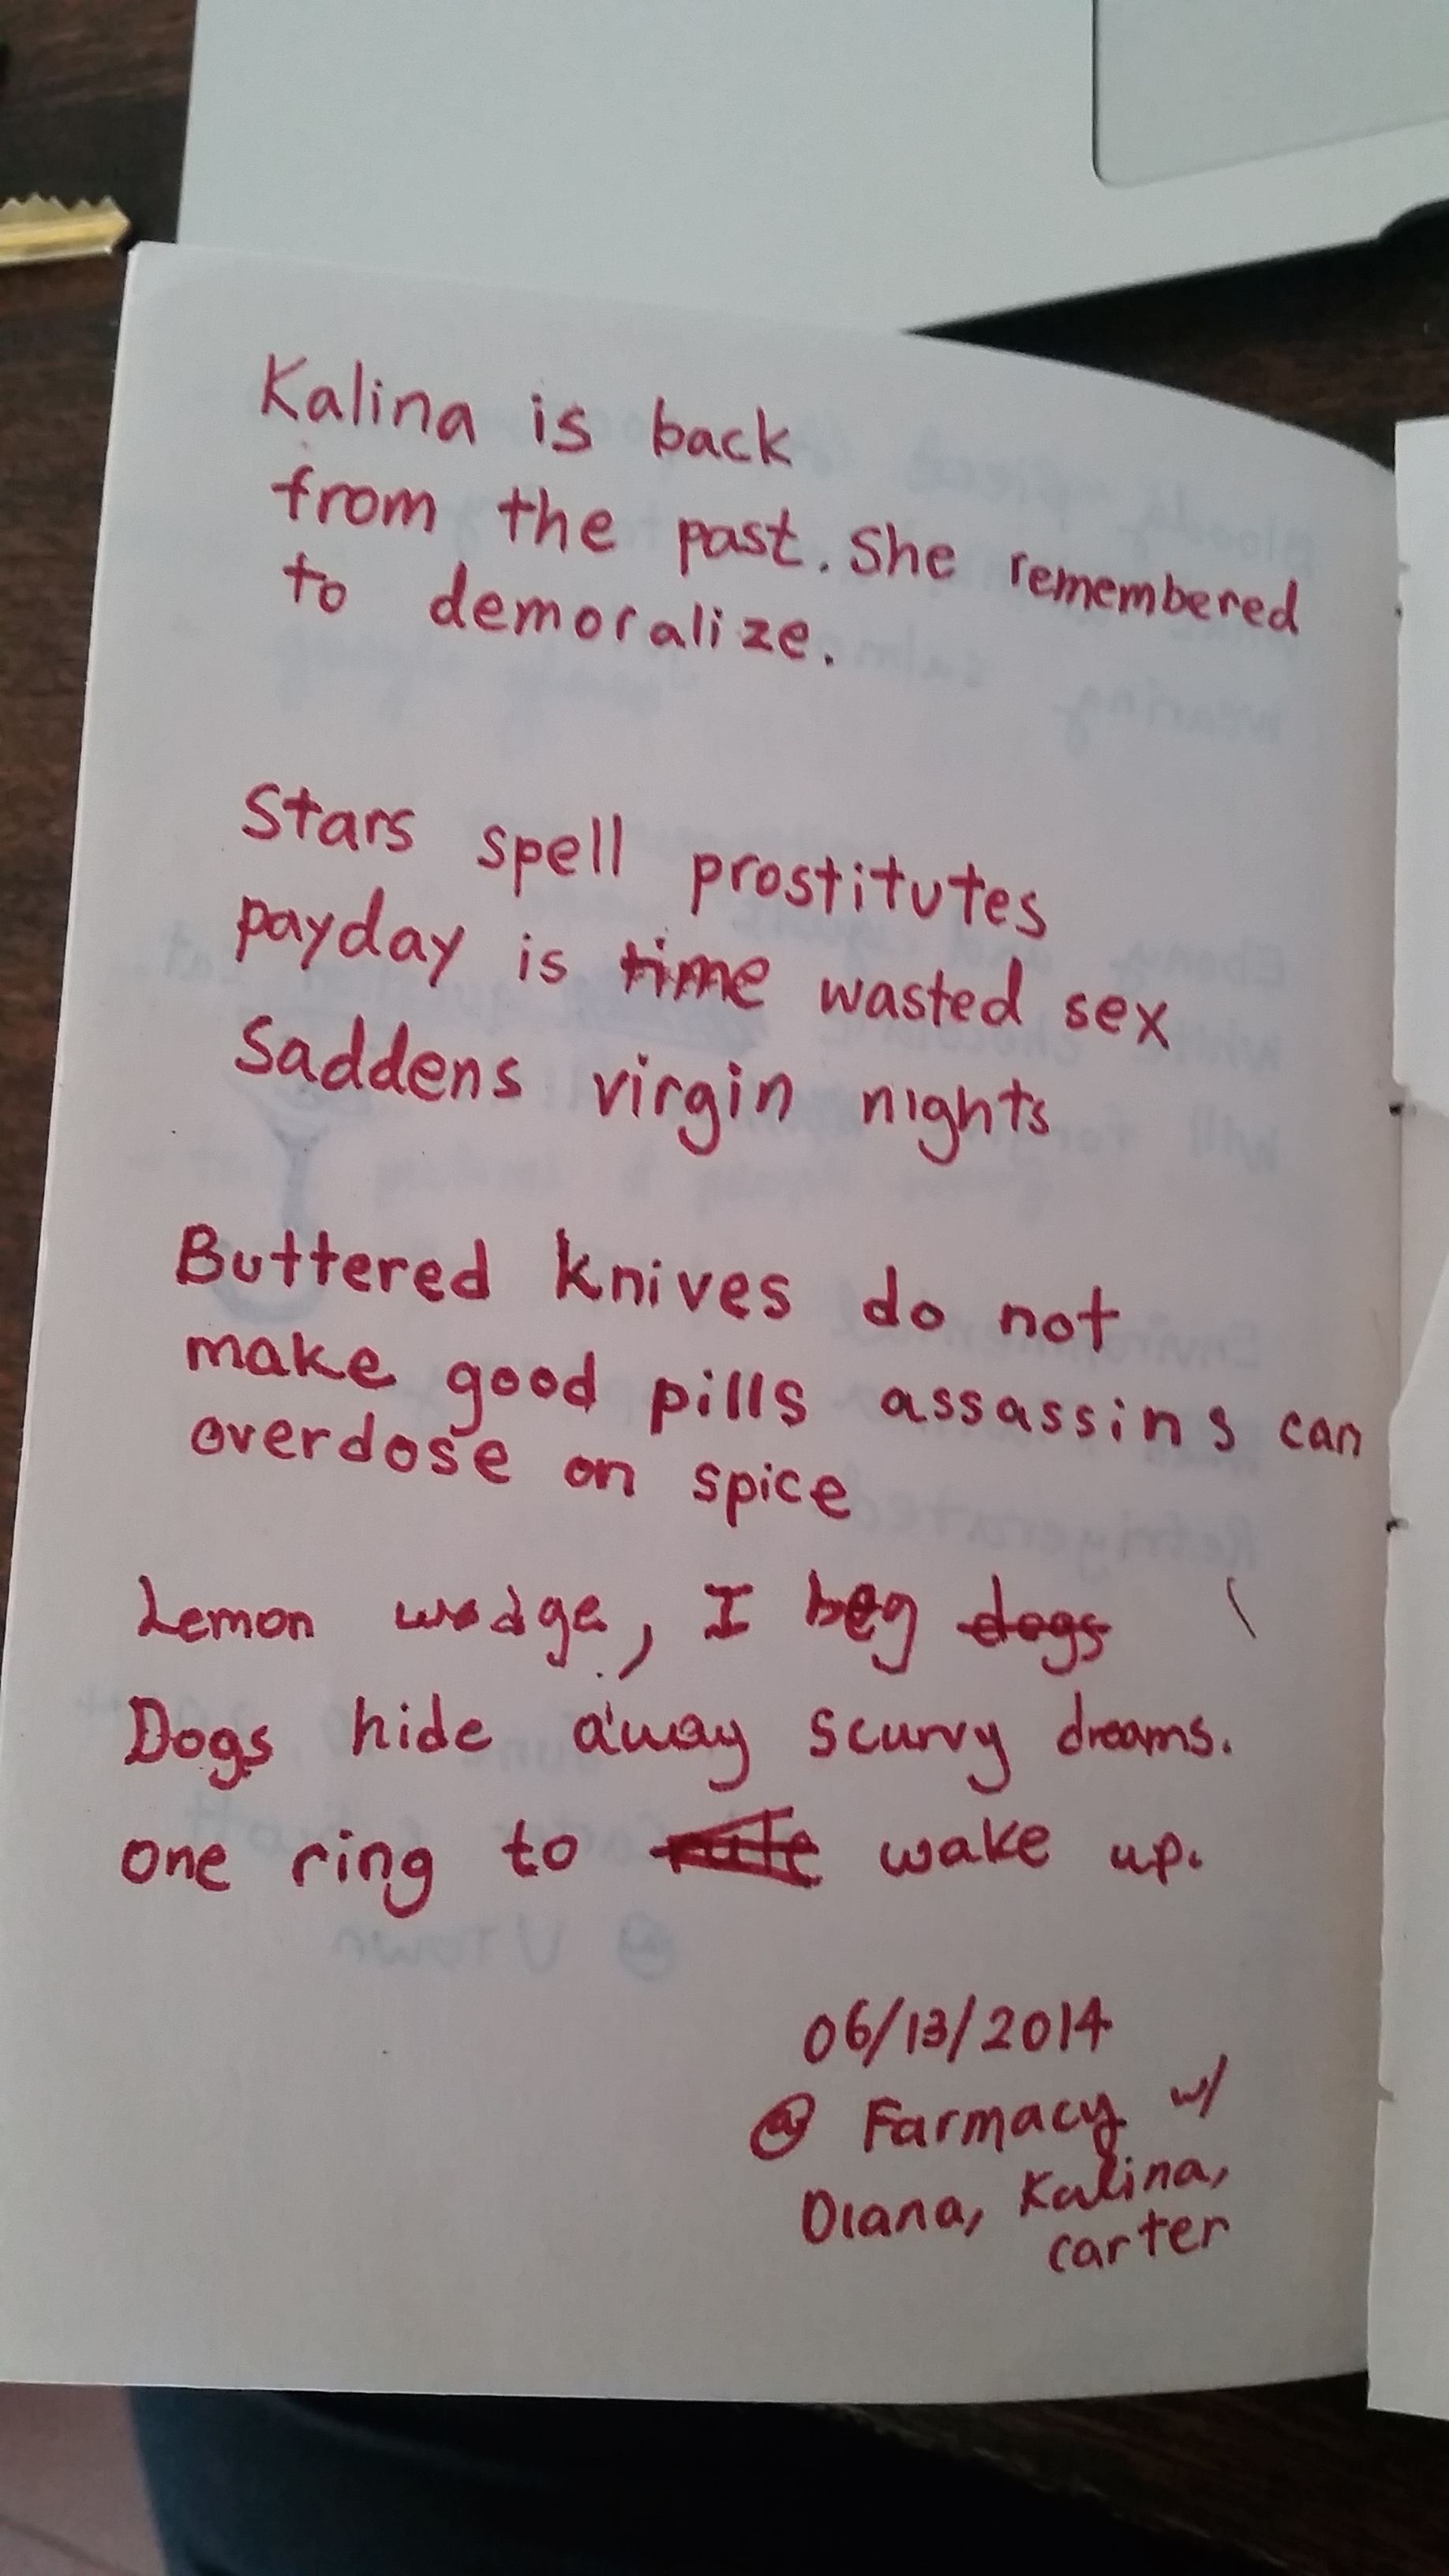 Kalina is back
from the past. She remembered
to demoralize.
Stars spell prostitutes
payday is time wasted sex
Saddens virgin nights
Buttered knives do not
make good pills assassins can
overdose on spice
Lemon wedge, I beg dogs
Dogs hide away scurvy dreams.
one ring to wake up.
06/13/2014
@ Farmacy w/
Diana, Kalina,
carter